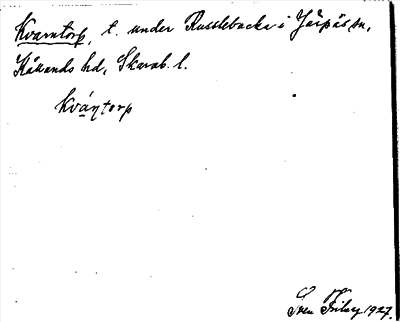 Kvarntorp, t. under Russlebacka i Järpås sn,
Kållands hd, Skarab. l.
Kváṇtorp
Sven Friley 1927.